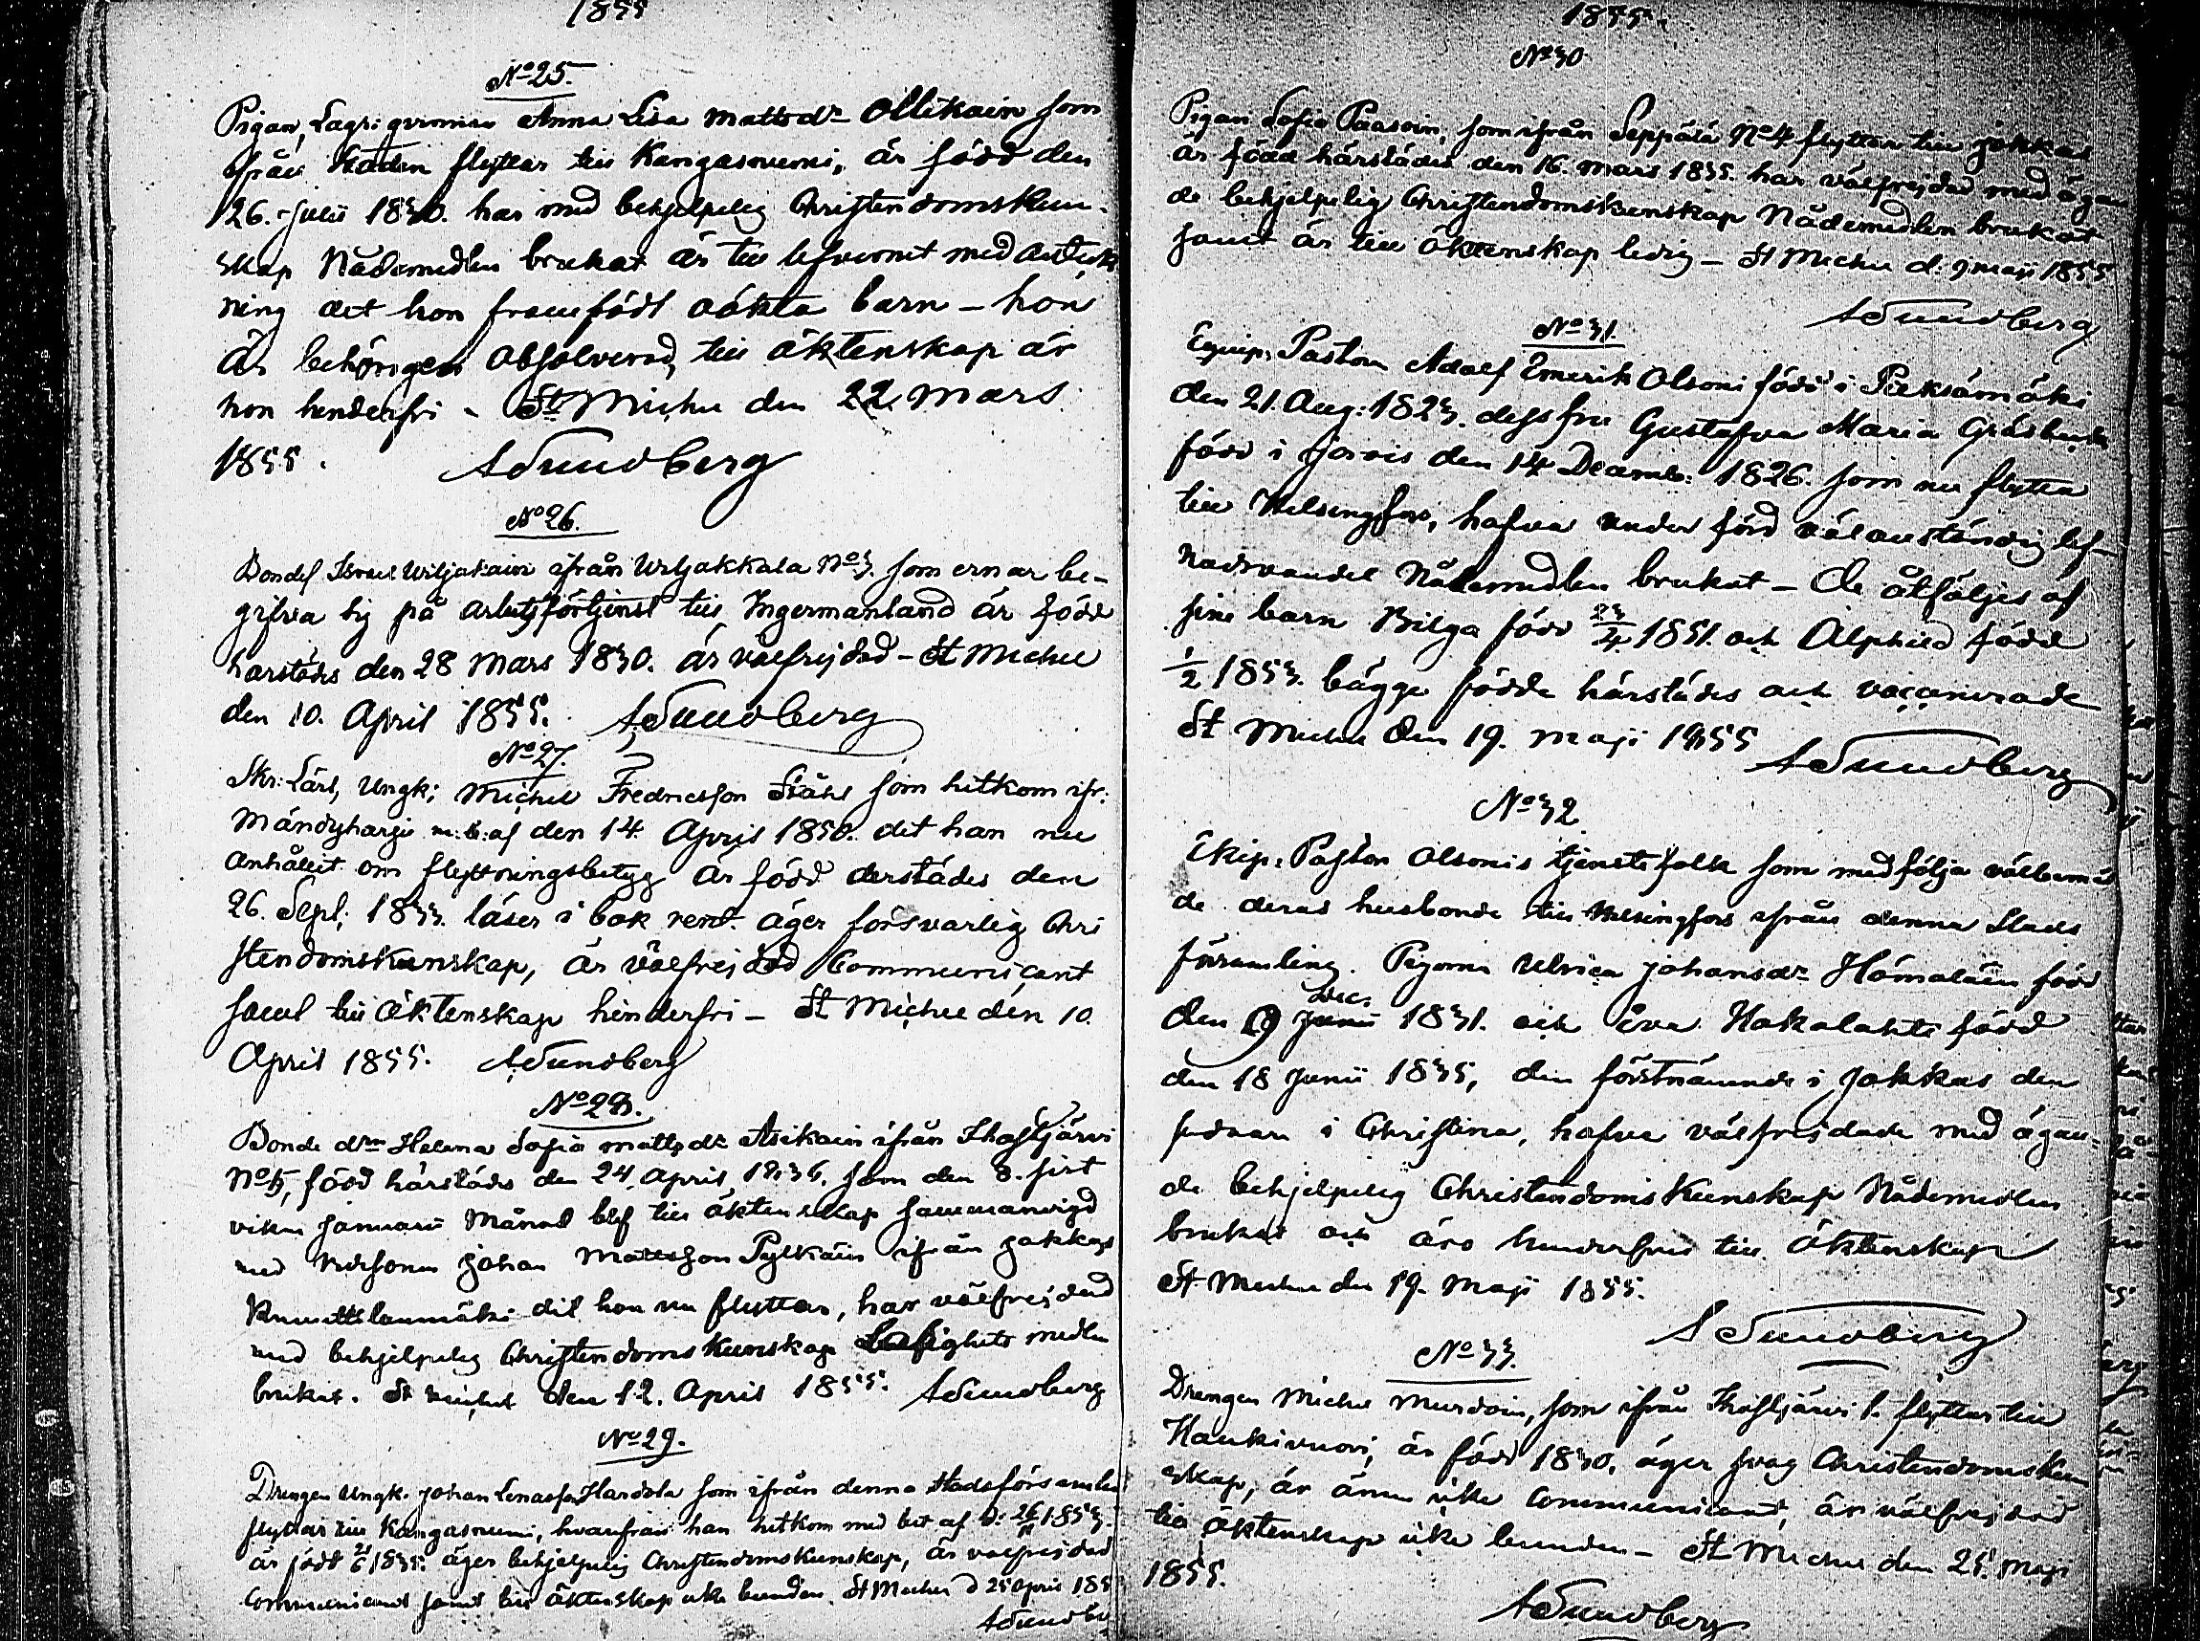 1855
No 25.
Pigan, Lagr: qvinnan Anna Lisa Mattsdr Ollikain som
ifrån Staden flyttar till Kangasniemi, är född den
26. Julii 1830. har med behjelpelig Christendomskun-
skap Nådemedlen brukat är till lefvernet med anteck
ning att hon framfödt oäkta barn – hon
är behörigen absolverad, till äktenskap är
hon hinderfri – St Michel den 22 Mars
1855. ASundberg
No 26.
Bondes. Israel Wiljakain ifrån Wiljakkala No 3. som ernar be-
gifva sig på arbetsförtjenst till Ingermanland är född
härstädes den 28 Mars 1830. är välfrejdad – St Michel
den 10. April 1855. ASundberg
No 27.
Skr: Lärl, Ungk: Michel Fredricsson Ståhl som hitkom ifr:
Mändyharju m: b: af den 14 April 1850. dit han nu
anhållit om flyttningsbetyg är född derstädes den
26. Sept: 1833. läser i bok rent. äger försvarlig Chri
stendomskunskap, är välfrejdad Communicant
samt till äktenskap hinderfri – St Michel den 10.
April 1855. ASundberg
No 28.
Bonde dtrn Helena Sofia Mattsdr Asikain ifrån Ihastjärvi
No 5, född härstädes den 24. April 1836. som den 8. sist
vikne Januarii Månad blef till äktenskap sammanvigd
med Johan Mattsson Pylkäin ifrån Jokkas
dit hon nu flyttar, har välfrejdad
med behjelpelig Christendoms Kunskap Salighets medlen
brukat. St Michel den 12. April 1855. ASundberg
No 29.
Drengen Ungk. Johan Hardola som ifrån denna Stadsförsamlin
flyttar till Kangasniemi, hvarifrån han hitkom med bet af d: 26/11 1853
är född 21/6 1835. äger behjelpelig Christendomskunskap, är välfrejdad
Communicant samt till äktenskap icke bunden. St Michel d 25 April 185
ASundbe
1855.
No 30
Pigan Sofia Paasoin, som ifrån Seppälä No 4 flyttar till Jokkas
är född härstädes den 16. Mars 1835. har välfrejdad med ägan
de behjelpelig Christendomskunskap Nådemedlen brukat
samt är till äktenskap ledig – St Michel d: 9 Maji 1855
ASundberg
No 31.
Equip: Pastorn Adolf Emerik Olsoni född i Pieksämäki
den 21. Aug: 1823. dess fru Gustafva Maria
född i Jorois den 14 Decemb: 1826. som nu flytta
till Helsingfors, hafva under förd välanständig lef-
nadsvandel Nådemedlen brukat – De åtföljes af
sine barn Kilga född 23/4 1851. och Alphild född
1/2 1853. bägge födde härstädes och vaccinerade
St Michel den 19. Maji 1855
ASundberg
No 32
Ekip: Pastor Olsonis tjenstefolk som medfölja
de deras husbonde till Helsingfors ifrån denna Stads
församling. Pigorna Ulrica Johansdr Hämäläin född
den 9 Dec. Junii 1831. och Eva Hakalahti född
den 18 Junii 1835, den förstnämnde i Jokkas den
sednare i Christina, hafva välfrejdade med ägan-
de behjelpelig Christendoms Kunskap Nådemedlen
brukat och äro hinderfria till äktenskap
St Michel den 19. Maji 1855.
ASundberg
No 33.
Drengen Michel Murdoin, som ifrån Ihastjärvi 1. flyttar till
Haukivuori, är född 1830. äger svag Christendomskun
skap, är ännu icke Communicant, är välfrejdad
till äktenskap icke bunden – St Michel den 25. Maji
1855.
ASundberg